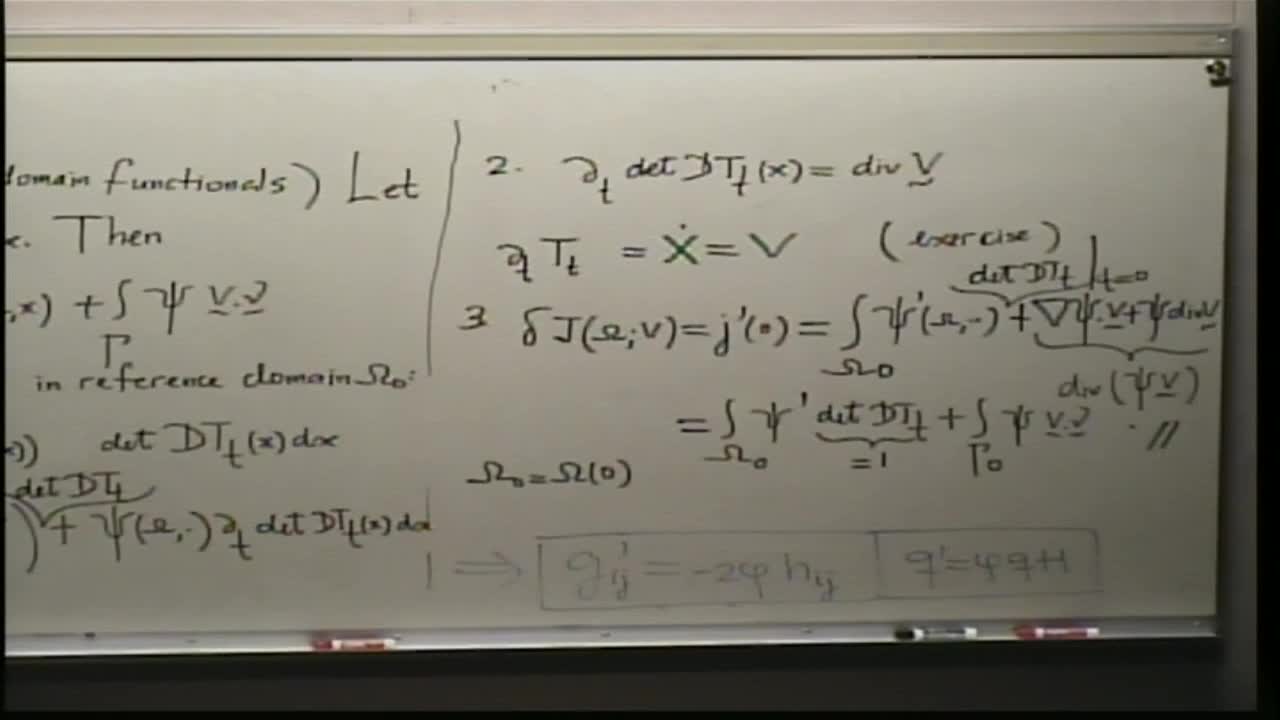 domain functionals) Let
Then
,x) + ∫_Γ ψ V·ν
in reference domain Ω₀:
x)) det DT_t(x) dx
det DT_t
) + ψ(Ω,·) ∂_t det DT_t(x) dx
2. ∂_t det DT_t(x) = div V
∂_t T_t = Ẋ = V (exercise)
det DT_t|_{t=0}
3 δJ(Ω;V) = j'(0) = ∫_{Ω₀} ψ'(Ω,·) + ∇ψ·V + ψ div V
div(ψV)
= ∫_{Ω₀} ψ' det DT_t + ∫_{Γ₀} ψ V·ν · //
=1
Ω₀ = Ω(0)
1 ⟹ g'_{ij} = -2φ h_{ij} g' = φgH